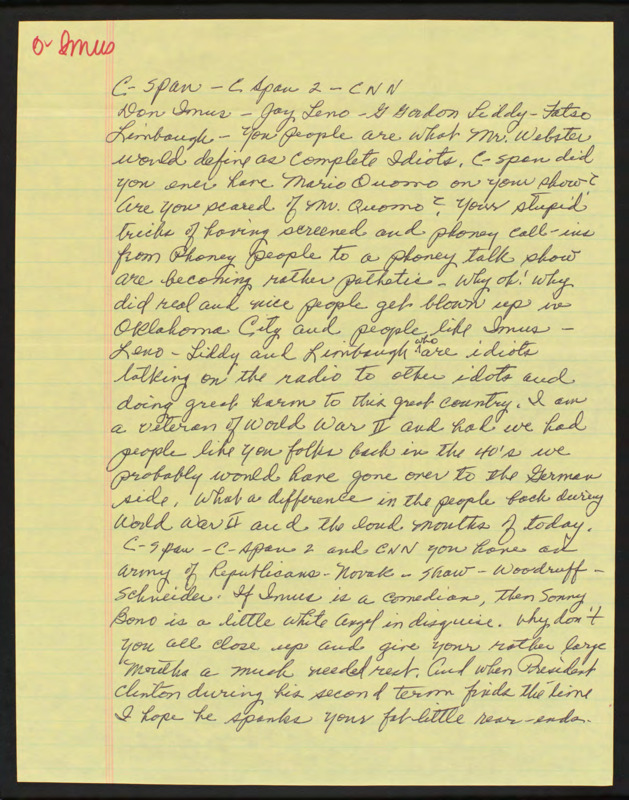 O- Imus
C-Span - C Span 2 - CNN
Don Imus - Jay Leno - G Gordon Liddy - Fatso
Limbaugh - You people are what Mr. Webster
would define as Complete Idiots. C-Span did
you ever have Mario Quomo on your show?
Are you scared of Mr. Quomo? Your stupid
tricks of having screened and phoney call-ins
from Phoney people to a phoney talk show
are becoming rather pathetic - Why oh! Why
did real and nice people get blown up in
Oklahoma City and people like Imus -
Leno - Liddy and Limbaugh who are idiots
talking on the radio to other idots and
doing great harm to this great country. I am
a veteran of World War II and had we had
people like you folks back in the 40's we
probably would have gone over to the German
side. What a difference in the people back during
World War II and the loud mouths of today.
C-Span - C-Span 2 and CNN you have an
army of Republicans - Novak - Shaw - Woodruff -
Schneider. If Imus is a comedian, then Sonny
Bono is a little white angel in disguise. Why don't
you all close up and give your rather large
mouths a much needed rest. And when President
Clinton during his second term finds the time
I hope he spanks your fat little rear-ends.